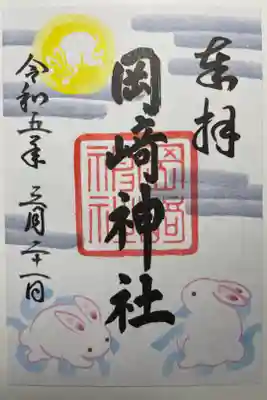 奉拝
岡崎神社
岡崎神社
令和五年三月二十一日